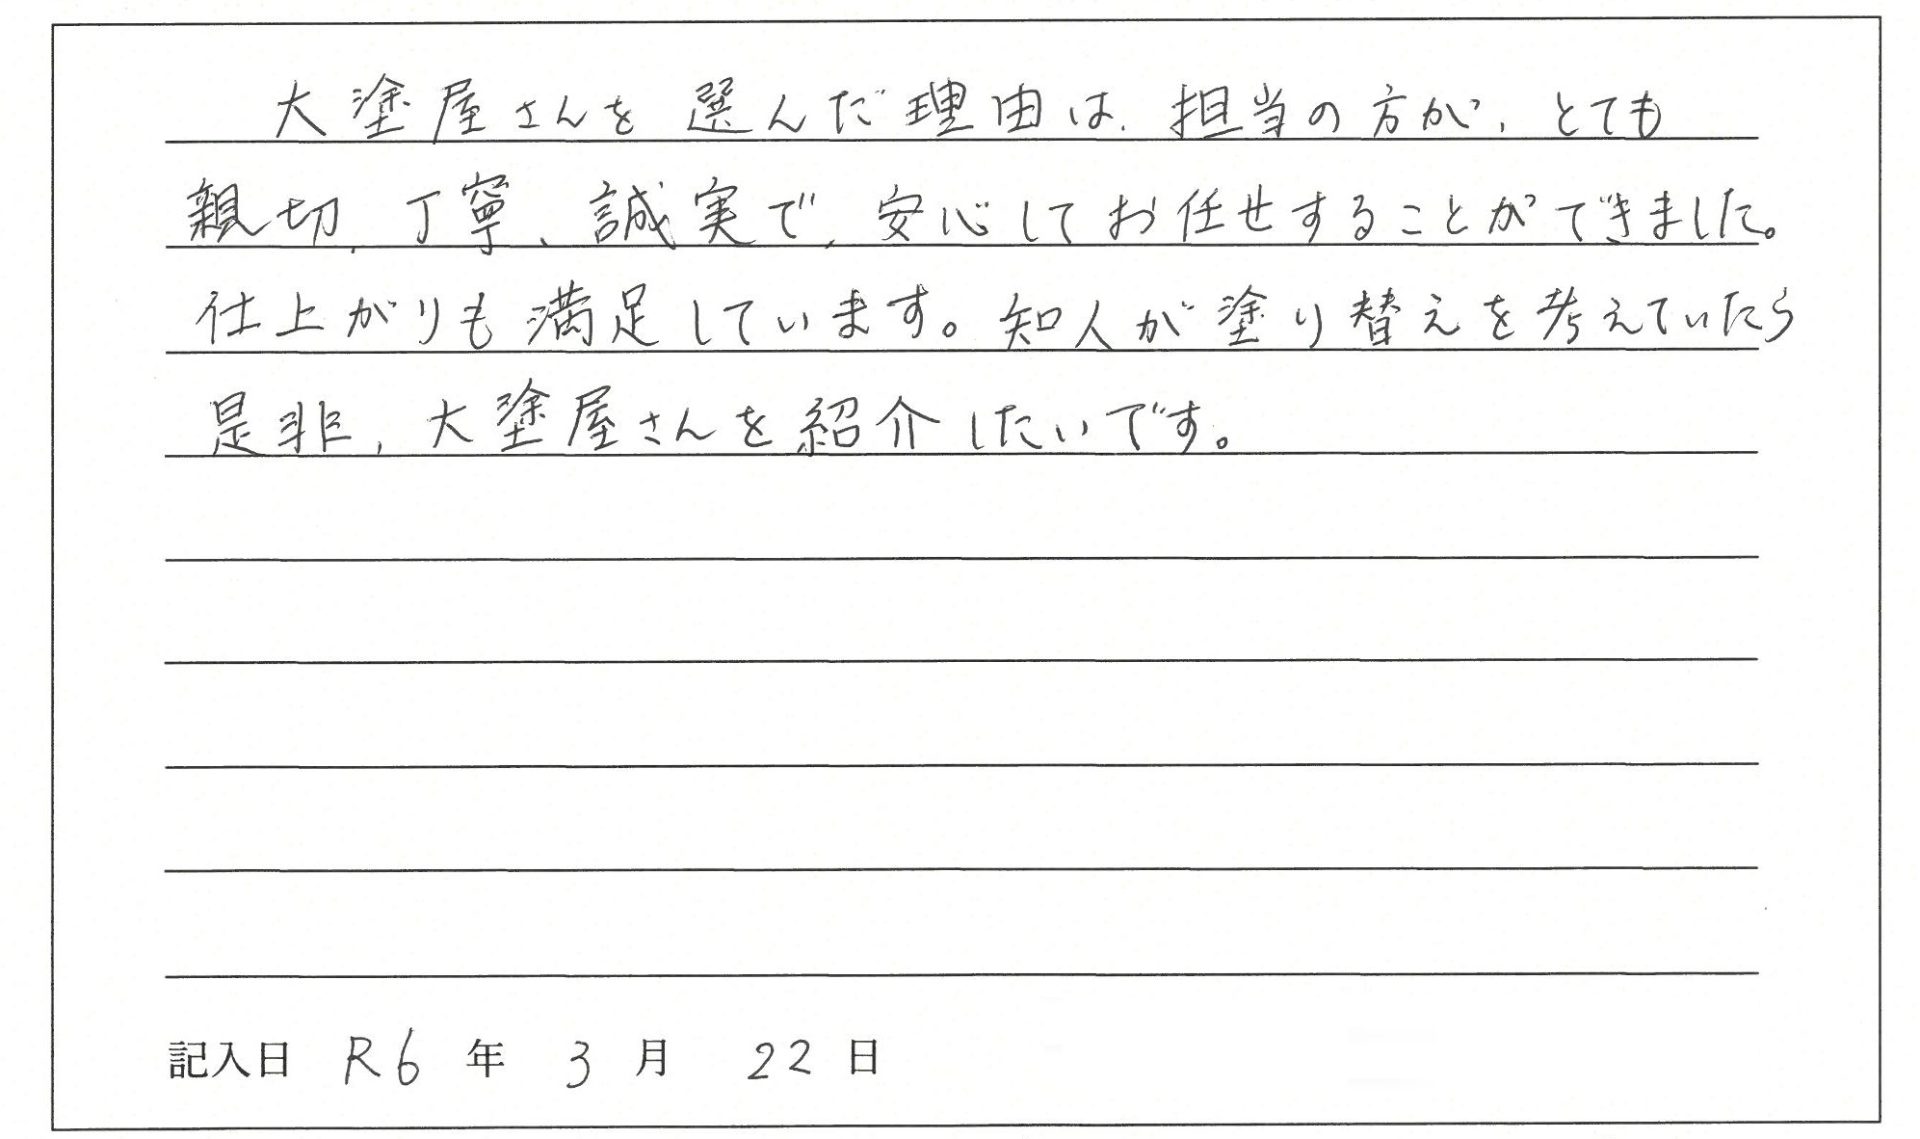 大塗屋さんを選んだ理由は、担当の方が、とても
親切、丁寧、誠実で、安心してお任せすることができました。
仕上がりも満足しています。知人が塗り替えを考えていたら
是非、大塗屋さんを紹介したいです。
記入日 R6 年 3 月 22 日